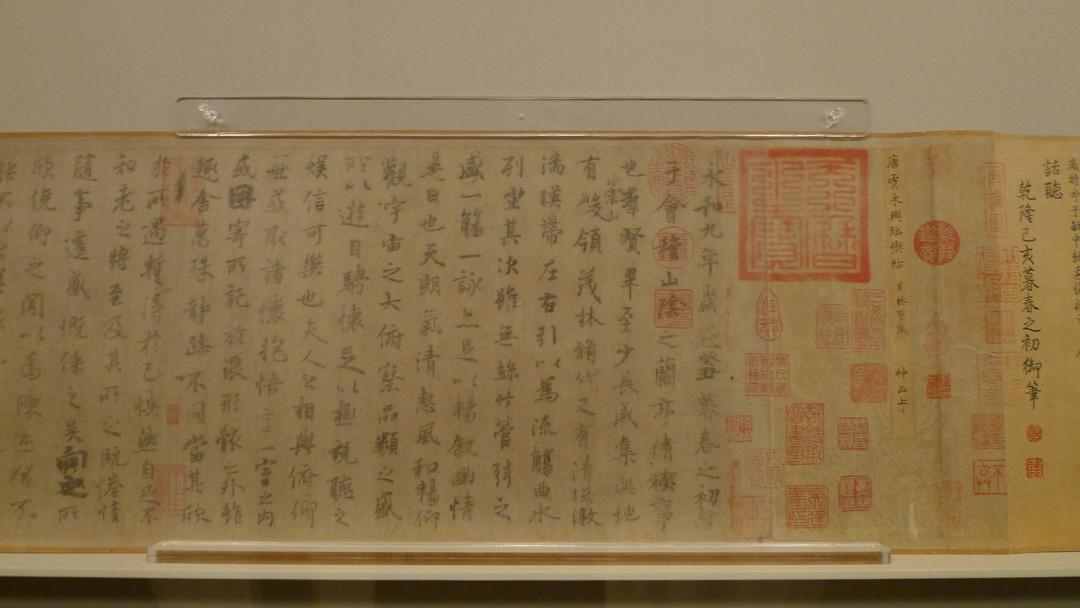 話聽
乾隆己亥暮春之初御筆
唐虞永興臨禊帖
神品上上
永和九年歲在癸丑暮春之初會
于會稽山陰之蘭亭脩禊事
也羣賢畢至少長咸集此地
有崇山峻領茂林脩竹又有清流激
湍暎帶左右引以為流觴曲水
列坐其次雖無絲竹管弦之
盛一觴一詠亦足以暢敘幽情
是日也天朗氣清惠風和暢仰
觀宇宙之大俯察品類之盛
所以遊目騁懷足以極視聽之
娛信可樂也夫人之相與俯仰
一世或取諸懷抱悟言一室之內
或因寄所託放浪形骸之外雖
趣舍萬殊靜躁不同當其欣
於所遇暫得於己怏然自足不
知老之將至及其所之既惓情
隨事遷感慨係之矣向之所
欣俛仰之閒以為陳迹猶不